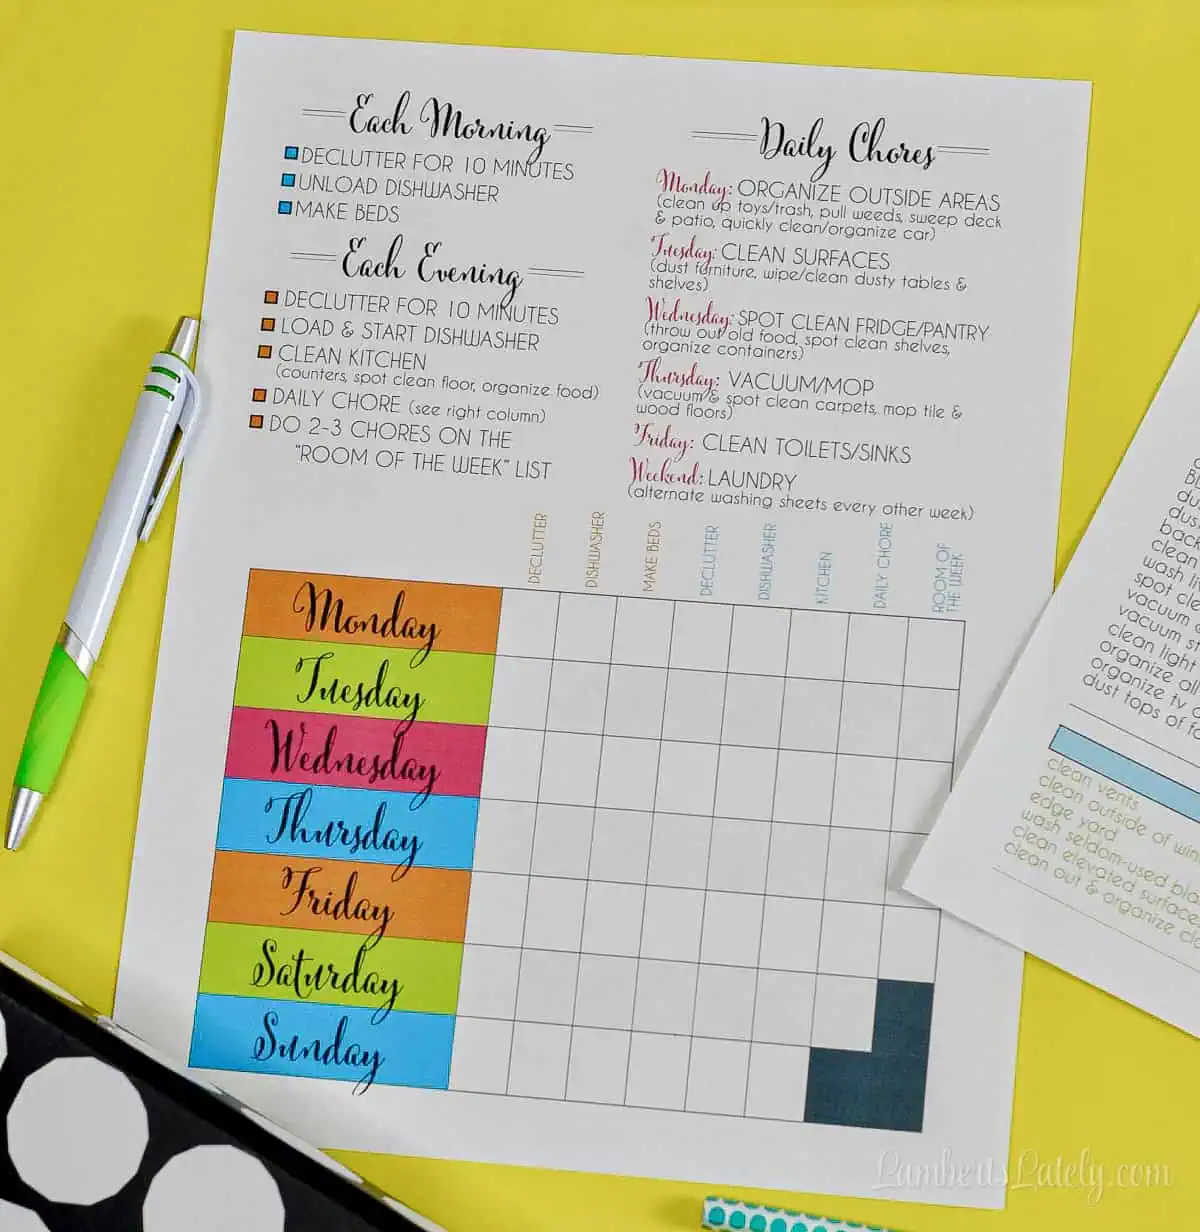 Each Morning
DECLUTTER FOR 10 MINUTES
UNLOAD DISHWASHER
MAKE BEDS
Each Evening
DECLUTTER FOR 10 MINUTES
LOAD & START DISHWASHER
CLEAN KITCHEN
(counters, spot clean floor, organize food)
DAILY CHORE (see right column)
DO 2-3 CHORES ON THE
"ROOM OF THE WEEK" LIST
Daily Chores
Monday: ORGANIZE OUTSIDE AREAS
(clean up toys/trash, pull weeds, sweep deck
& patio, quickly clean/organize car)
Tuesday: CLEAN SURFACES
(dust furniture, wipe/clean dusty tables &
shelves)
Wednesday: SPOT CLEAN FRIDGE/PANTRY
(throw out old food, spot clean shelves,
organize containers)
Thursday: VACUUM/MOP
(vacuum & spot clean carpets, mop tile &
wood floors)
Friday: CLEAN TOILETS/SINKS
Weekend: LAUNDRY
(alternate washing sheets every other week)
DECLUTTER
DISHWASHER
MAKE BEDS
DECLUTTER
DISHWASHER
KITCHEN
DAILY CHORE
ROOM OF
THE WEEK
Monday
Tuesday
Wednesday
Thursday
Friday
Saturday
Sunday
clean
wash
spot
vacuum
vacuum
clean light
organize all
organize tv
dust tops of
clean vents
clean outside of
edge yard
wash seldom-used
clean elevated
clean out & organize
LambertsLately.com